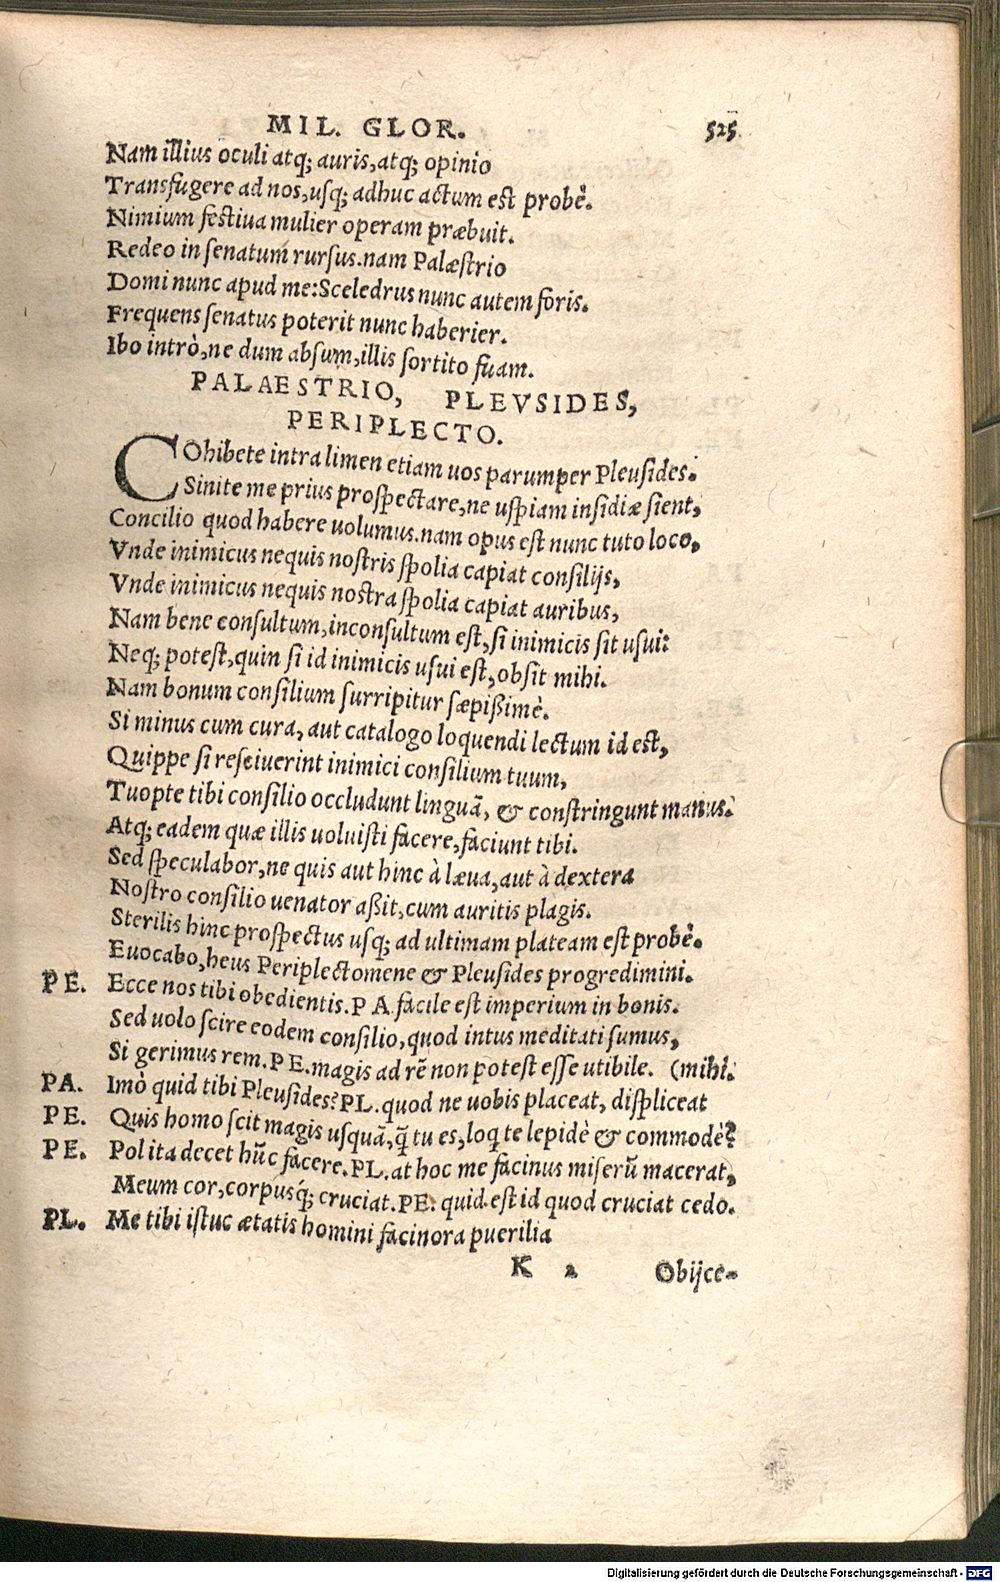 MIL. GLOR. 525
Nam illius oculi atq; auris, atq; opinio
Transfugere ad nos, usq; adhuc actum est probè.
Nimium festiua mulier operam præbuit.
Redeo in senatum rursus. nam Palæstrio
Domi nunc apud me: Sceledrus nunc autem foris.
Frequens senatus poterit nunc haberier.
Ibo intrò, ne dum absum, illis sortito fuam.
PALAESTRIO, PLEVSIDES,
PERIPLECTO.
COhibete intra limen etiam uos parumper Pleusides.
Sinite me prius prospectare, ne uspiam insidiæ sient,
Concilio quod habere uolumus. nam opus est nunc tuto loco,
Vnde inimicus nequis nostris spolia capiat consilijs,
Vnde inimicus nequis nostra spolia capiat auribus,
Nam bene consultum, inconsultum est, si inimicis sit usui:
Neq; potest, quin si id inimicis usui est, obsit mihi.
Nam bonum consilium surripitur sæpißimè.
Si minus cum cura, aut catalogo loquendi lectum id est,
Quippe si resciuerint inimici consilium tuum,
Tuopte tibi consilio occludunt linguā, & constringunt manus.
Atq; eadem quæ illis uoluisti facere, faciunt tibi.
Sed speculabor, ne quis aut hinc à læua, aut à dextera
Nostro consilio uenator aßit, cum auritis plagis.
Sterilis hinc prospectus usq; ad ultimam plateam est probè.
Euocabo, heus Periplectomene & Pleusides progredimini.
PE. Ecce nos tibi obedientis. PA. facile est imperium in bonis.
Sed uolo scire eodem consilio, quod intus meditati sumus,
Si gerimus rem. PE. magis ad rē non potest esse utibile. (mihi.
PA. Imò quid tibi Pleusides? PL. quod ne uobis placeat, displiceat
PE. Quis homo scit magis usquā, q̃ tu es, loq te lepidè & commodè?
PE. Pol ita decet hūc facere. PL. at hoc me facinus miserū macerat,
Meum cor, corpusq́; cruciat. PE. quid est id quod cruciat cedo.
PL. Me tibi istuc ætatis homini facinora puerilia
K 2 Obijce-
Digitalisierung gefördert durch die Deutsche Forschungsgemeinschaft - DFG